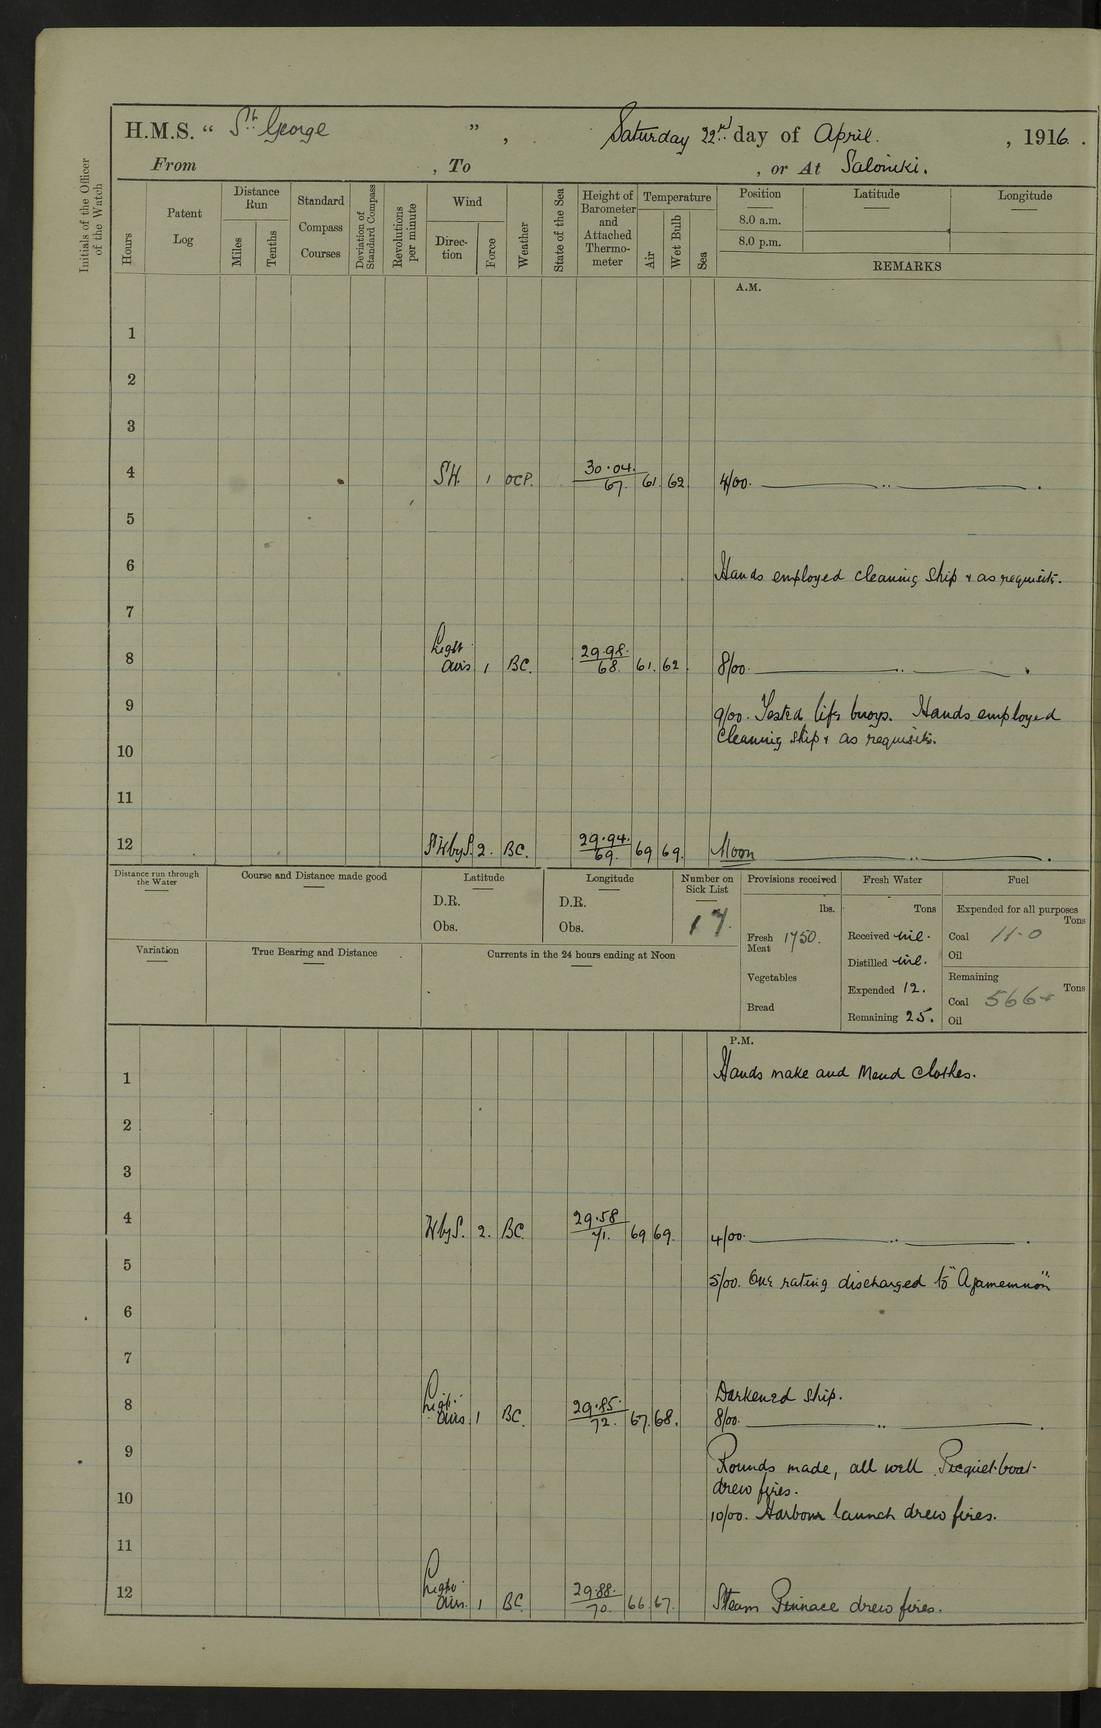 H.M.S. “ St. George ” , Saturday 22nd day of April. , 1916 .
From , To , or At Salonicki.
Initials of the Officer
of the Watch
Hours
Patent
Log
Distance
Run
Miles
Tenths
Standard
Compass
Courses
Deviation of
Standard Compass
Revolutions
per minute
Wind
Direc-
tion
Force
Weather
State of the Sea
Height of
Barometer
and
Attached
Thermo-
meter
Temperature
Air
Wet Bulb
Sea
Position Latitude Longitude
8.0 a.m.
8.0 p.m.
REMARKS
A.M.
1
2
3
4 SW. 1 OCP. 30.04. 67. 61. 62. 4/00.
5
6 Hands employed cleaning ship & as requisite.
7
8 Light airs. 1 BC. 29.98. 68. 61. 62. 8/00.
9 9/00. Tested life buoys. Hands employed
cleaning ship & as requisite.
10
11
12 SWbyS. 2. BC. 29.94. 69. 69 69. Noon
Distance run through
the Water
Course and Distance made good
Latitude
D.R.
Obs.
Longitude
D.R.
Obs.
Number on
Sick List
17.
Provisions received
lbs.
Fresh Meat 1750.
Vegetables
Bread
Fresh Water
Tons
Received nil.
Distilled nil.
Expended 12.
Remaining 25.
Fuel
Expended for all purposes
Tons
Coal 11-0
Oil
Remaining
Tons
Coal 566
Oil
Variation
True Bearing and Distance
Currents in the 24 hours ending at Noon
P.M.
1 Hands make and Mend Clothes.
2
3
4 WbyS. 2. BC. 29.58 71. 69 69. 4/00.
5 5/00. One rating discharged to "Agamemnon"
6
7
Darkened ship.
8 Light airs. 1 BC. 29.85. 72. 67. 68. 8/00.
9 Rounds made, all well. Picquet-boat
drew fires.
10 10/00. Harbour launch drew fires.
11
12 Light airs. 1 BC. 29.88. 70. 66. 67. Steam Pinnace drew fires.